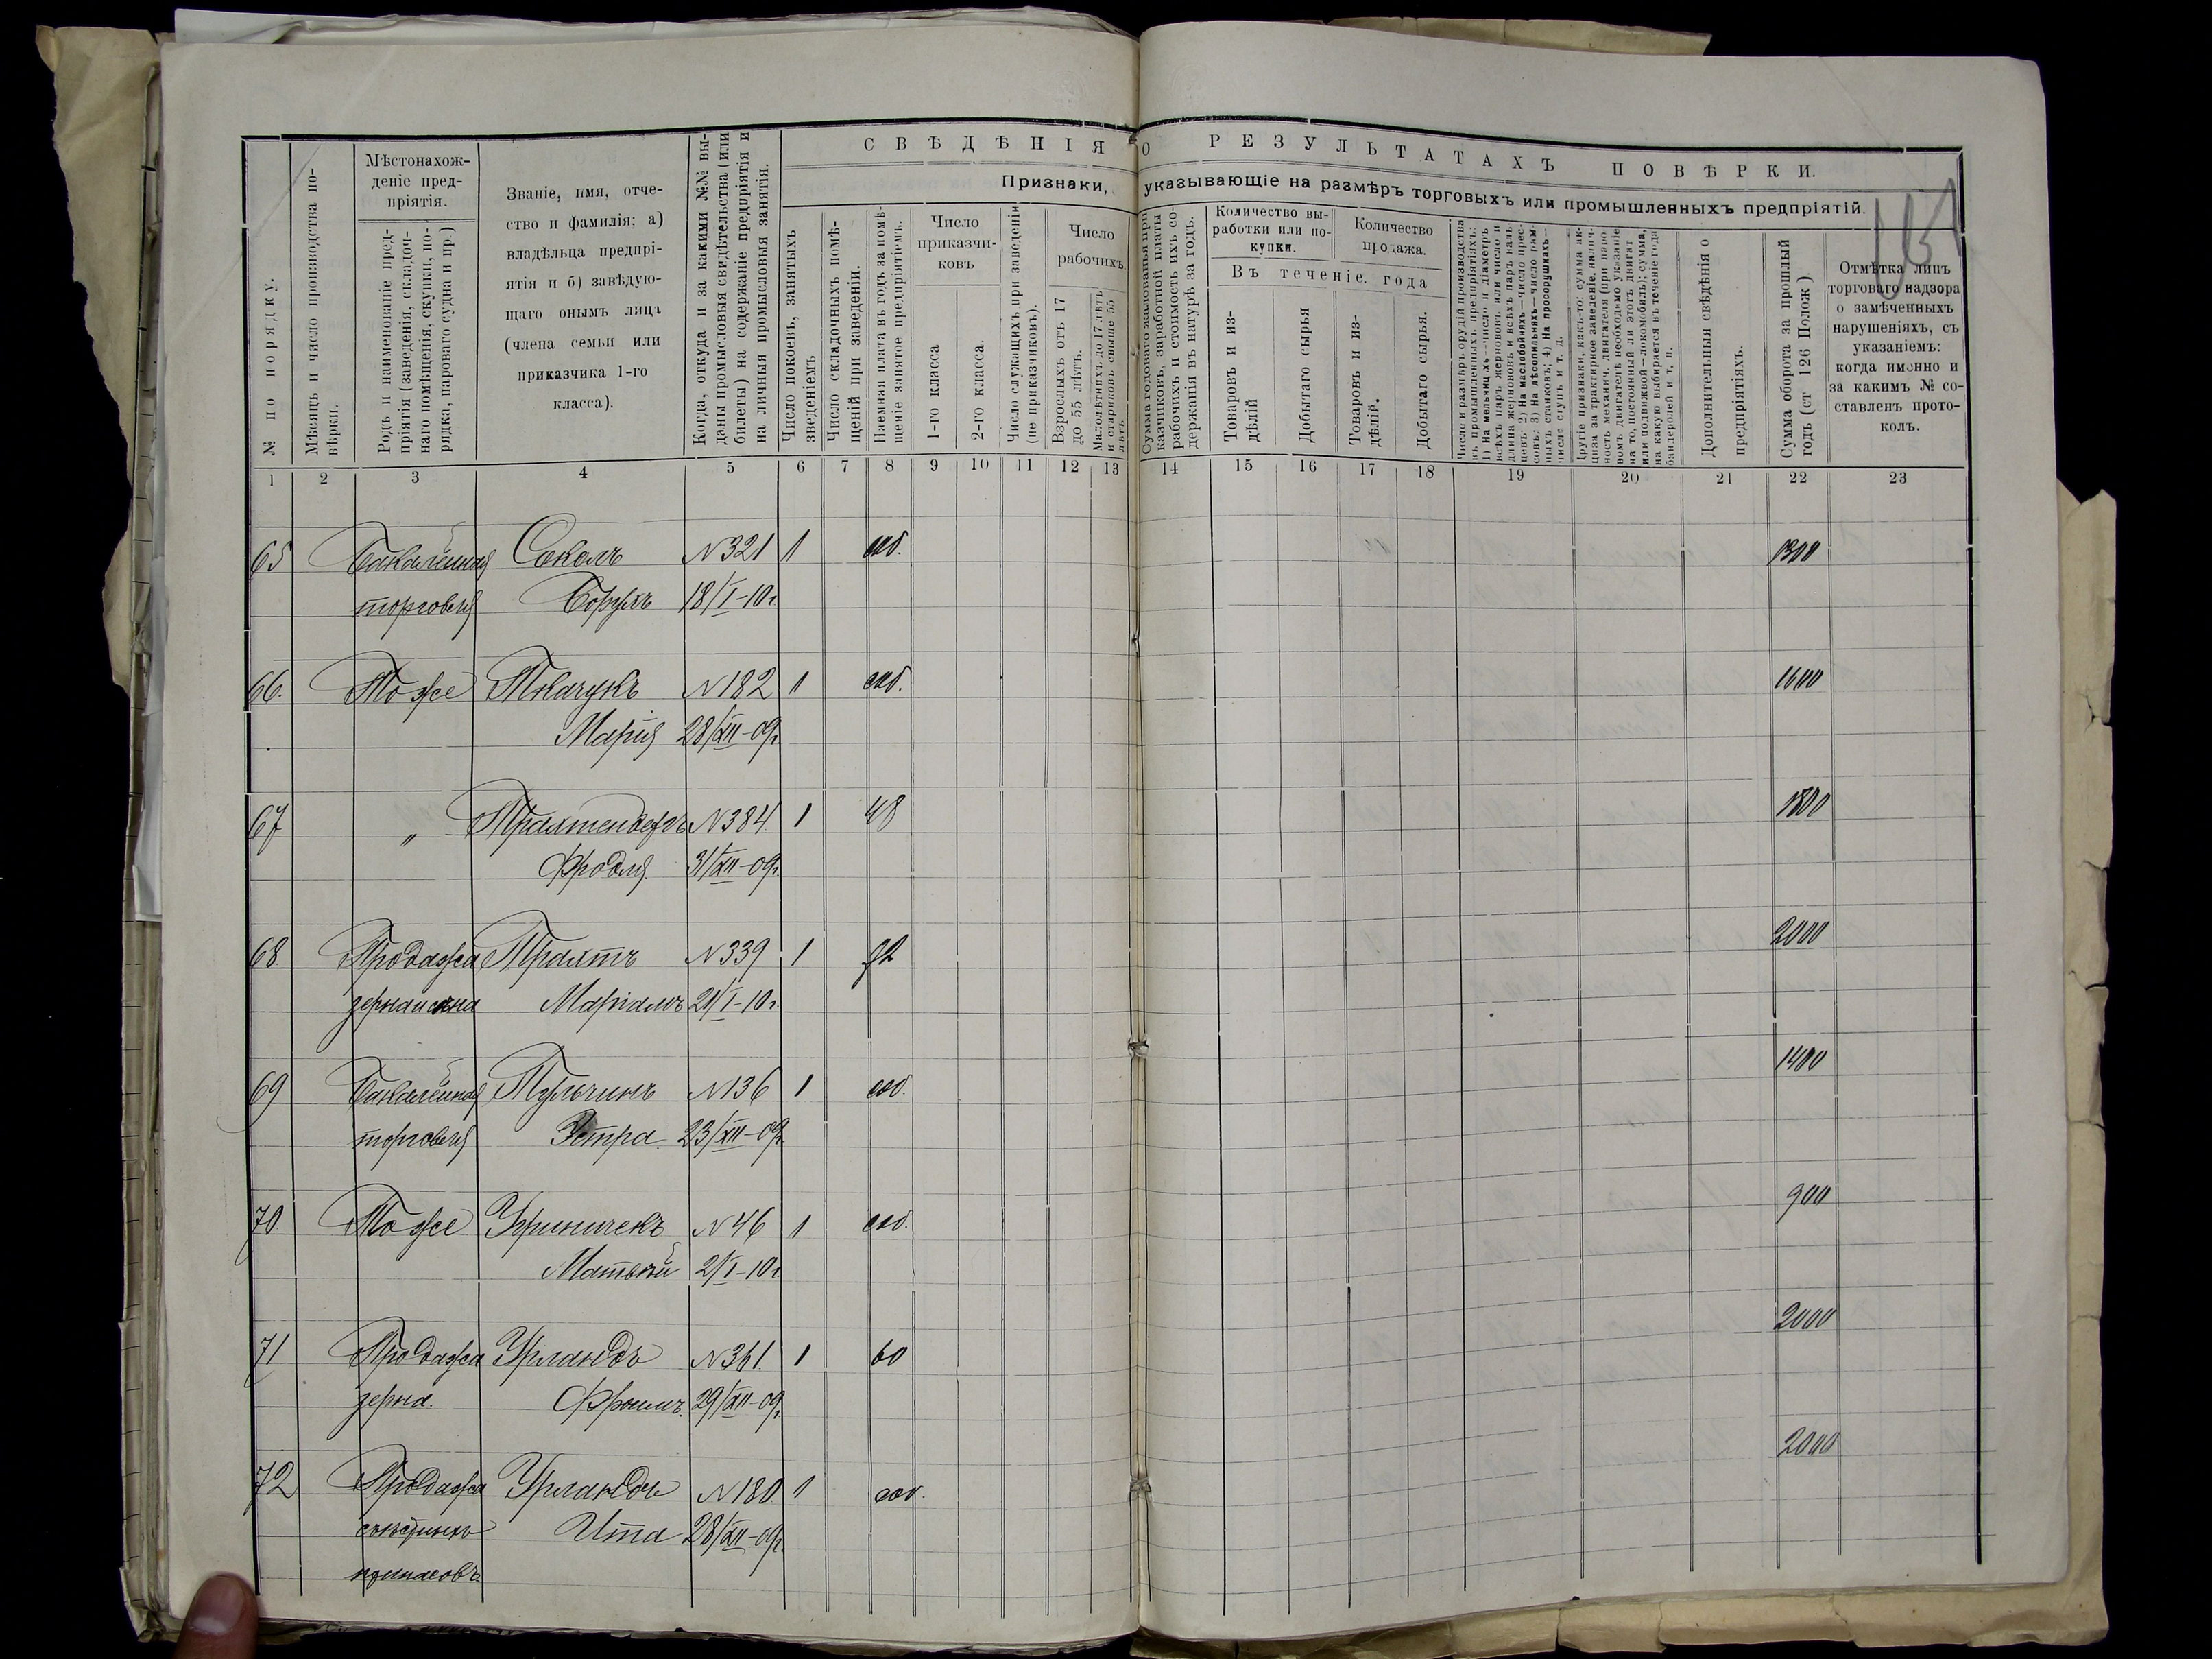 СВѢДѢНІЯ О РЕЗУЛЬТАТАХЪ ПОВѢРКИ.
Признаки, указывающіе на размѣръ торговыхъ или промышленныхъ предпріятій.
№ по порядку.
Мѣсяцъ и число производства по-
вѣрки.
Мѣстонахож-
деніе пред-
пріятія.
Родъ и наименованіе пред-
пріятія (заведенія, складоч-
наго помѣщенія, скупки, по-
рядка, пароваго судна и пр.)
Званіе, имя, отче-
ство и фамилія: а)
владѣльца предпрі-
ятія и б) завѣдую-
щаго онымъ лица
(члена семьи или
приказчика 1-го
класса).
Когда, откуда и за какими №№ вы-
даны промысловыя свидѣтельства (или
билеты) на содержаніе предпріятія и
на личныя промысловыя занятія.
Число покоевъ, занятыхъ
зведеніемъ
Число складочныхъ помѣ-
щеній при заведеніи.
Наемная плата въ годъ за помѣ-
щеніе занятое предпріятіемъ.
Число
приказчи-
ковъ
1-го класса.
2-го класса.
Число служащихъ при заведеніи
(не приказчиковъ).
Число
рабочихъ.
Взрослыхъ отъ 17
до 55 лѣтъ.
Малолѣтнихъ до 17 лѣтъ
и стариковъ свыше 55
лѣтъ
Сумма годоваго жалованья при-
казчиковъ, заработной платы
рабочихъ и стоимость ихъ со-
держанія въ натурѣ за годъ.
Количество вы-
работки или по-
купки.
Количество
продажа.
Въ теченіе года
Товаровъ и из-
дѣлій
Добытаго сырья
Товаровъ и из-
дѣлій.
Добытаго сырья.
Число и размѣръ орудій производства
въ промышленныхъ предпріятіяхъ:
1) На мельницахъ—число и діаметръ
всѣхъ паръ жернововъ или число и
длина жернововъ и всѣхъ паръ валь-
цевъ 2) На маслобойняхъ—число прес-
совъ; 3) На лѣсопильняхъ—число рам-
ныхъ станковъ; 4) На просорушкахъ—
число ступъ и т. д.
Другіе признаки, какъ-то: сумма ак-
циза за трактирное заведеніе, налич-
ность механич. двигателя (при паро-
вомъ двигателѣ необходимо указаніе
на то, постоянный ли этотъ двигат
или подвижной—локомобиль); сумма,
на какую выбирается въ теченіе года
бандеролей и т. п.
Дополнительныя свѣдѣнія о
предпріятіяхъ.
Сумма оборота за прошлый
годъ (ст 126 Полож)
Отмѣтка лицъ
торговаго надзора
о замѣченныхъ
нарушеніяхъ, съ
указаніемъ:
когда именно и
за какимъ № со-
ставленъ прото-
колъ.
1 2 3 4 5 6 7 8 9 10 11 12 13 14 15 16 17 18 19 20 21 22 23
65 Бакалейная Соколъ N321 1 соб. 1300
торговля Борухъ 18/I-10г
66. То же Ткачукъ N182 1 соб. 1600
Марія 28/XII-09г.
67 „ Трахтенбергъ N384 1 48 1800
Фродля 31/XII-09г.
68 Продажа Трахтъ N339 1 92 2000
зерна и сѣна Маріамъ 21/I-10г.
69 Бакалейная Тульчинъ N136 1 соб. 1400
торговля Эстра 23/XII-09г
70 То же N46 1 соб. 900
2/I-10г
71 Продажа Урландъ N361. 1 60 2000
зерна. Фроимъ. 29/XII-09г.
72 Продажа Урландъ N180. 1 соб. 2000
съѣстныхъ Ита 28/XII-09г.
припасовъ